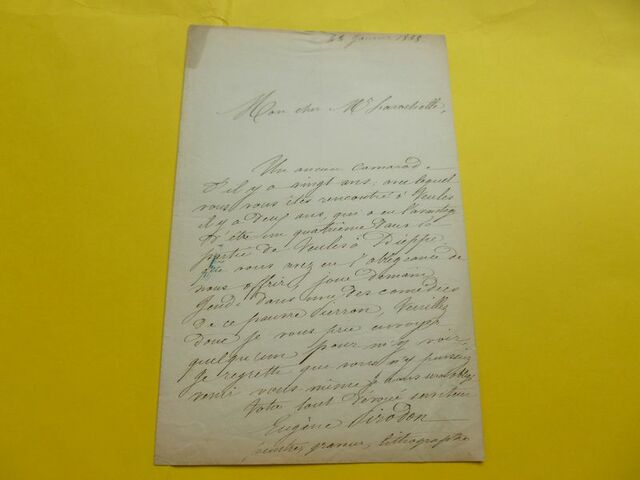 Janvier 1885
Mon cher Mr Larochelle,
Un ancien camarad.
d'il y a vingt ans, avec lequel
vous vous êtes rencontré à Veules
il y a deux ans, qui a eu l'avantage
d'être un quatrième dans la
partie de Veules à Dieppe
que vous avez eu l'obligeance de
nous offrir, joue demain
Jeudi dans une des comédies
de ce pauvre Pierron, Veuillez
donc je vous prie envoyer
quelqu'un pour m'y voir,
Je regrette que vous n'y puissiez
venir vous même je
Votre tout dévoué serviteur
Eugène Pirodon
peintre, graveur, lithographe